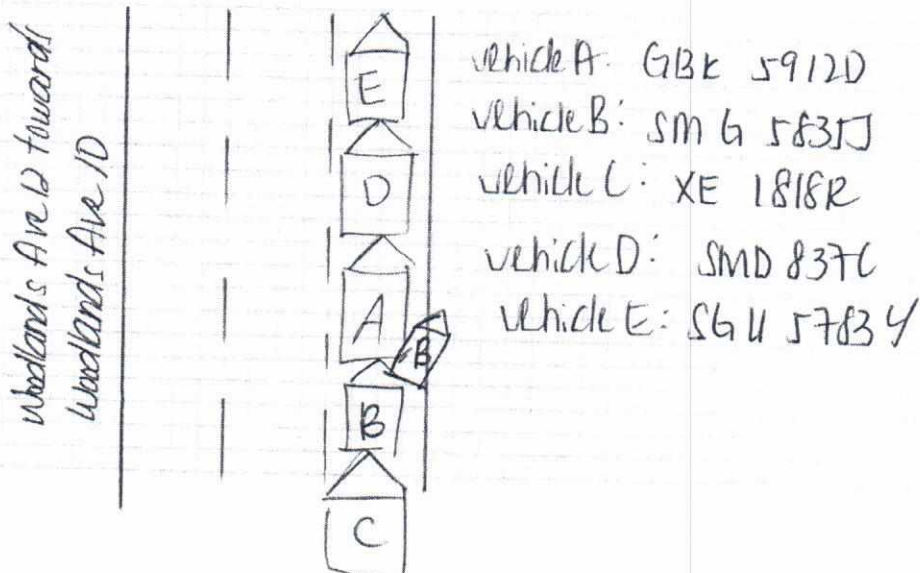 Woodlands Ave 12 towards
Woodlands Ave 10
E
D
A
B
B
C
vehicle A: GBK 5912D
vehicle B: SMG 5835J
vehicle C: XE 1818R
vehicle D: SMD 837C
vehicle E: SGU 5783Y